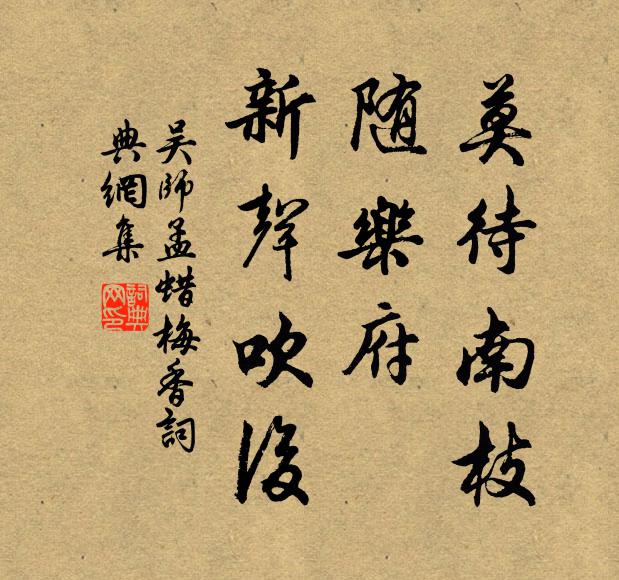 莫待南枝
随樂府
新聲吹後
吴師孟蜡梅香詞
典網集
詞典網印